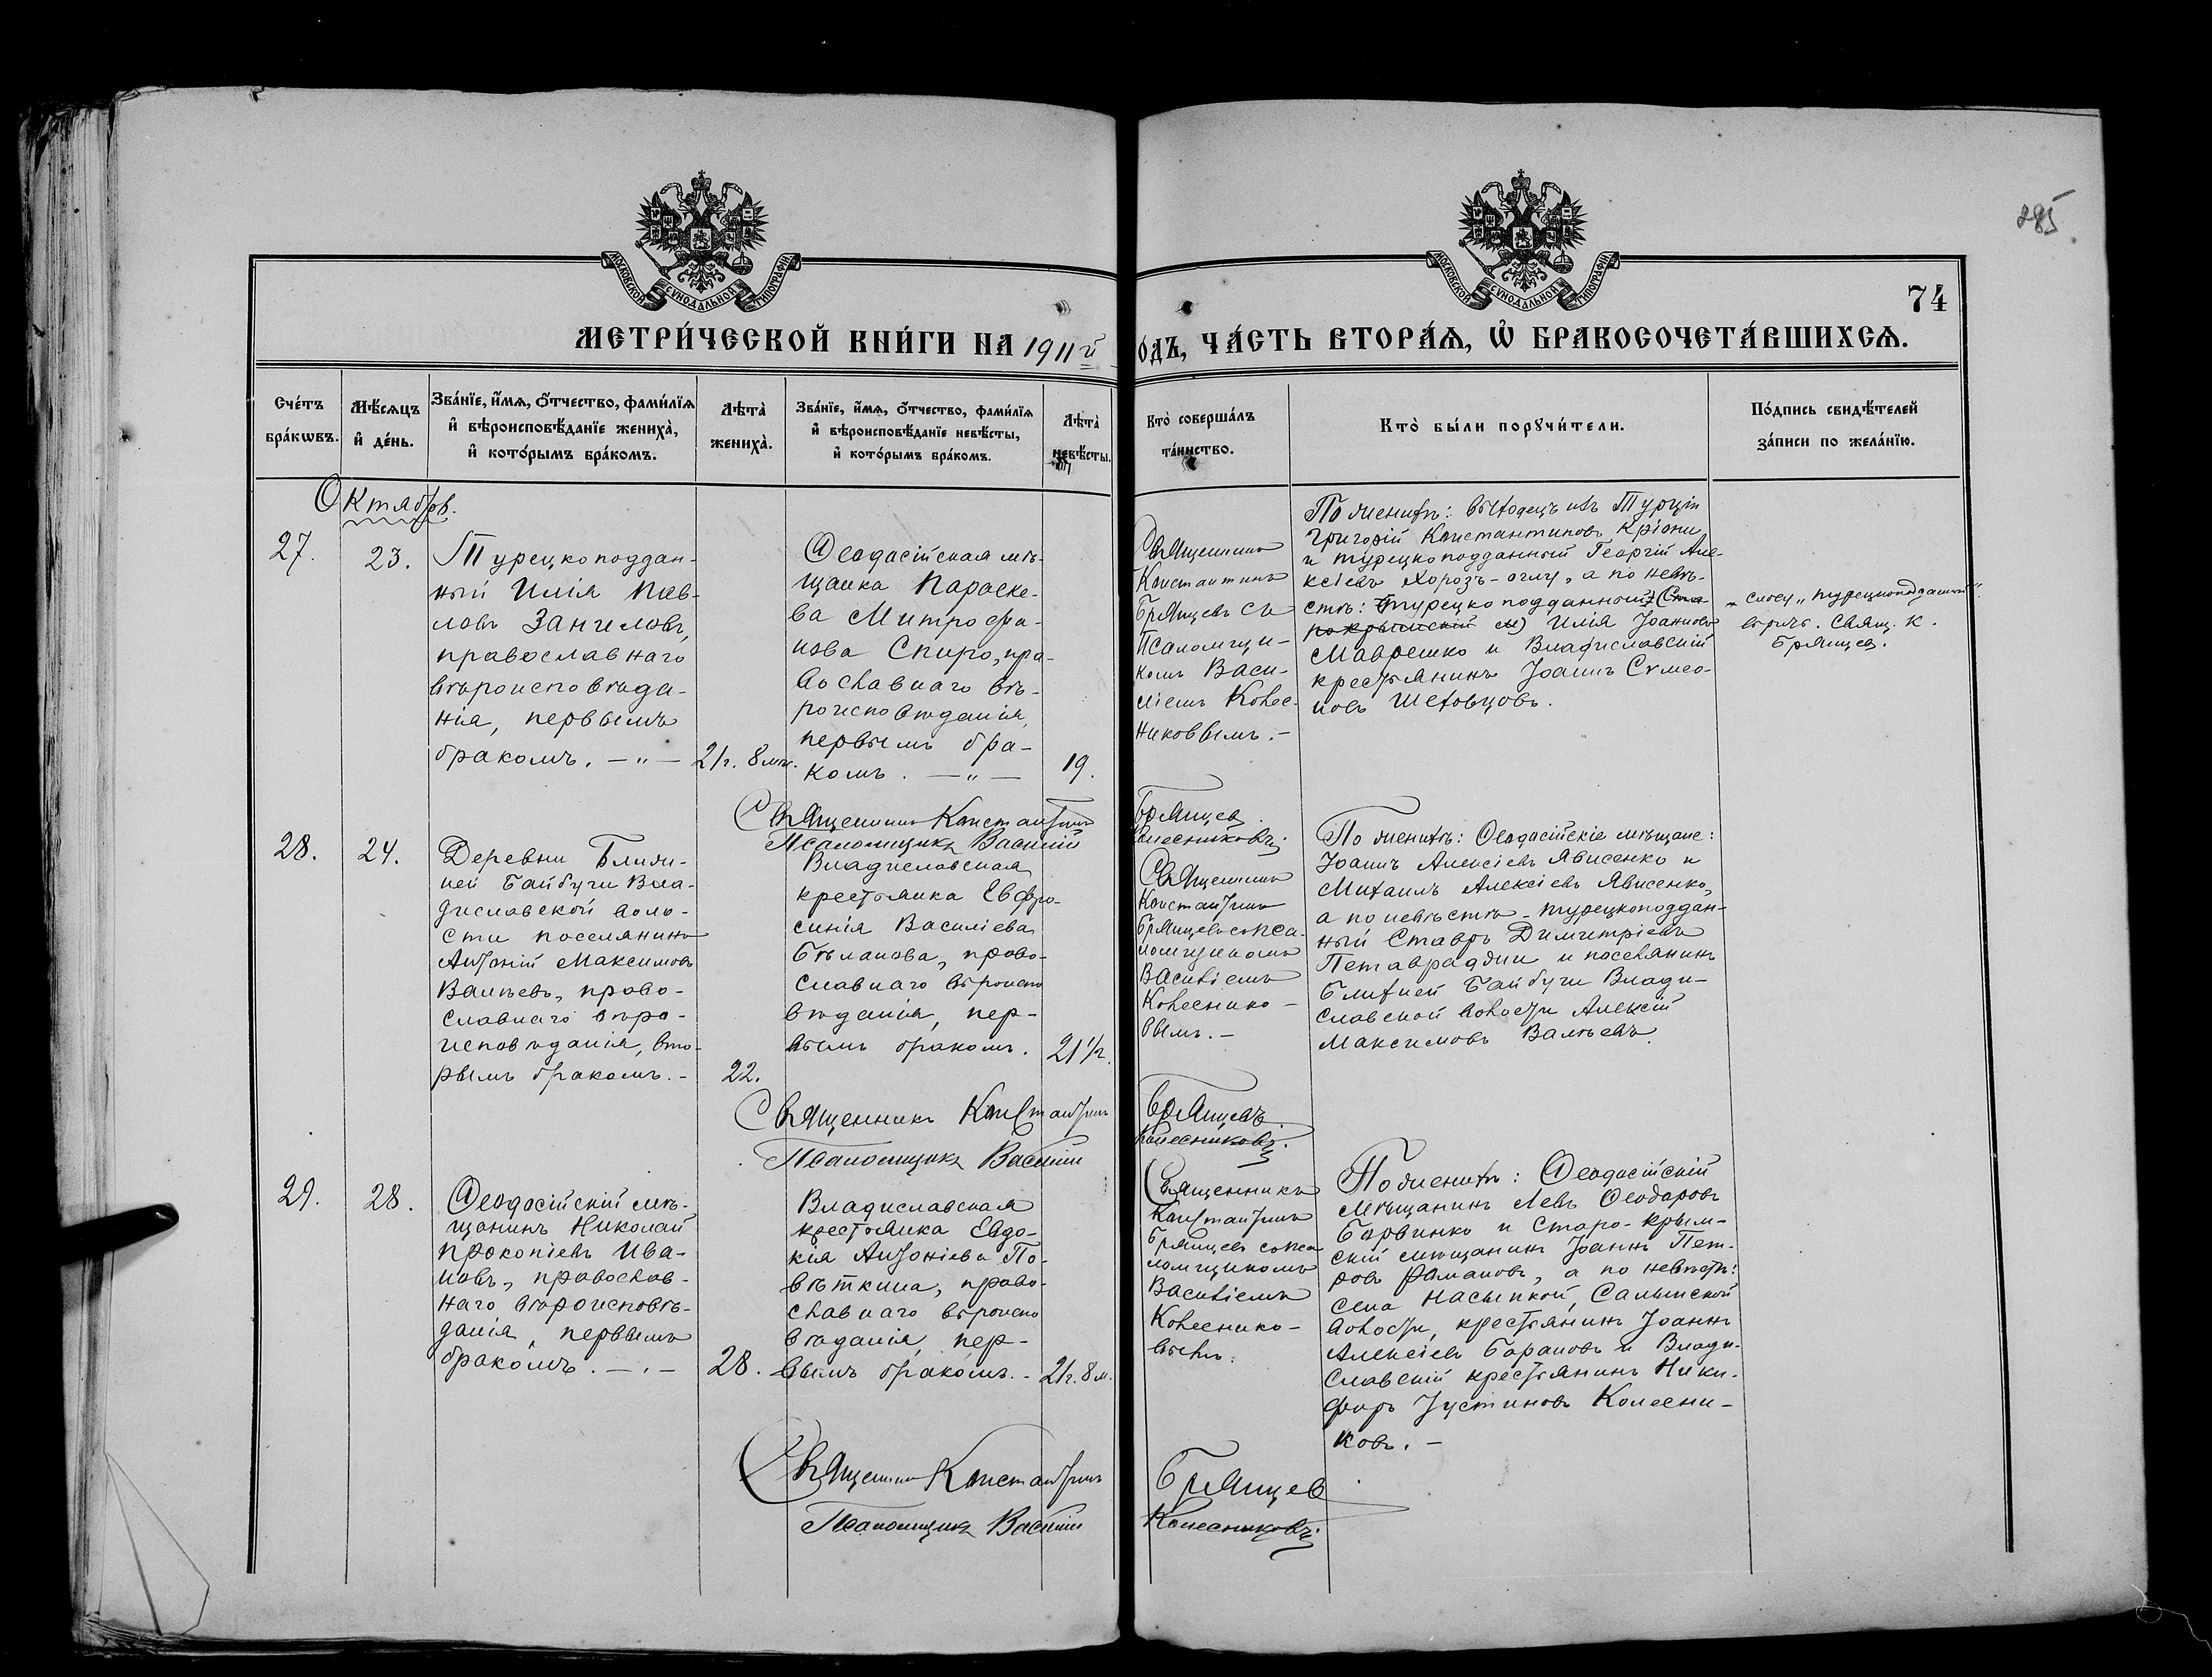 285
74
МОСКОВСКОЙ СѴНОДАЛЬНОЙ ТИПОГРАФІИ
МОСКОВСКОЙ СѴНОДАЛЬНОЙ ТИПОГРАФІИ
МЕТРИ́ЧЕСКОЙ КНИ́ГИ НА 1911й
ОДЪ, ЧА́СТЬ ВТОРА́Ѧ, Ѿ БРАКОСОЧЕТА́ВШИХСѦ.
Сче́тъ
бра́кѡвъ.
Мѣ́сѧцъ
и҆ де́нь.
Зва́нїе, и҆́мѧ, ѻ҆́тчество, фами́лїѧ
и҆ вѣроисповѣ́данїе жениха̀,
и҆ кото́рымъ бра́комъ.
Лѣта̀
жениха̀.
Зва́нїе, и҆́мѧ, ѻ҆́тчество, фами́лїѧ
и҆ вѣроисповѣ́данїе невѣ́сты,
и҆ кото́рымъ бра́комъ.
Лѣта̀
невѣ́сты.
Кто̀ соверша́лъ
та́инство.
Кто̀ бы́ли порꙋчи́тели.
По́дпись свидѣ́телей
за́писи по жела́нїю.
Октябрь.
27.
23.
Турецкоподдан-
ный Илія Пав-
ловъ Зангиловъ,
православнаго
вѣроисповѣда-
нія, первымъ
бракомъ. — " —
21г. 8 мѣ.
Ѳеодосійская мѣ-
щанка Параске-
ва Митрофа-
нова Спиро, пра-
вославнаго вѣ-
роисповѣданія,
первымъ бра-
комъ. — " —
19.
Священникъ
Константинъ
Брянцевъ съ
Псаломщи-
комъ Васи-
ліемъ Колес-
никовымъ. —
По женихѣ: выходецъ изъ Турціи
Григорій Константиновъ Кріони
и турецкоподданный Георгій Але-
ксіевъ Хорозъ-оглу, а по невѣ-
стѣ: турецкоподданный (Ста
рокрымскій м) Илія Іоанновъ
Маврешко и Владиславскій
крестьянинъ Іоаннъ Сѵмео-
новъ Шеховцовъ.
слову „турецкоподданный"
вѣрить. Свящ. К.
Брянцев.
Священникъ Константинъ
Брянцев.
Псаломщикъ Василій
Колесниковъ.
28.
24.
Деревни Ближ-
ней Байбуги Вла-
диславской воло-
сти поселянинъ
Антоній Максимовъ
Вальевъ, право-
славнаго вѣро-
исповѣданія, вто-
рымъ бракомъ. -
22.
Владиславская
крестьянка Евфро-
синія Василіева
Бѣланова, право-
славнаго вѣроиспо
вѣданія, пер-
вымъ бракомъ.
21½.
Священникъ
Константинъ
Брянцевъ со пса-
ломщикомъ
Василіемъ
Колеснико-
вымъ. —
По женихѣ: Ѳеодосійскіе мѣщане:
Іоаннъ Алексіевъ Явисенко и
Михаилъ Алексіевъ Явисенко,
а по невѣстѣ - турецкоподдан-
ный Ставръ Димитріевъ
и поселянинъ
Ближней Байбуги Влади-
славской волости Алексій
Максимовъ Вальевъ.
Священникъ Константинъ
Брянцевъ.
Псаломщикъ Василій
Колесниковъ.
29.
28.
Ѳеодосійскій мѣ-
щанинъ Николай
Прокопіевъ Ива-
новъ, православ-
наго вѣроисповѣ-
данія, первымъ
бракомъ. — . —
28.
Владиславская
крестьянка Евдо-
кія Антоніева По-
вѣткина, право-
славнаго вѣроиспо
вѣданія, пер-
вымъ бракомъ. -
21г. 8 м.
Священникъ
Константинъ
Брянцевъ со пса
ломщикомъ
Василіемъ
Колеснико-
вымъ.
По женихѣ: Ѳеодосійскій
мѣщанинъ Левъ Ѳеодоровъ
Барвинко и Старо-крым-
скій мѣщанинъ Іоаннъ Пет-
ровъ Романовъ, а по невѣстѣ:
села Насыпкой, Салынской
волости, крестьянинъ Іоаннъ
Алексіевъ Барановъ и Влади-
славскій крестьянинъ Ники-
форъ Іустиновъ Колесни-
ковъ. —
Священникъ Константинъ
Брянцев
Псаломщикъ Василій
Колесниковъ.